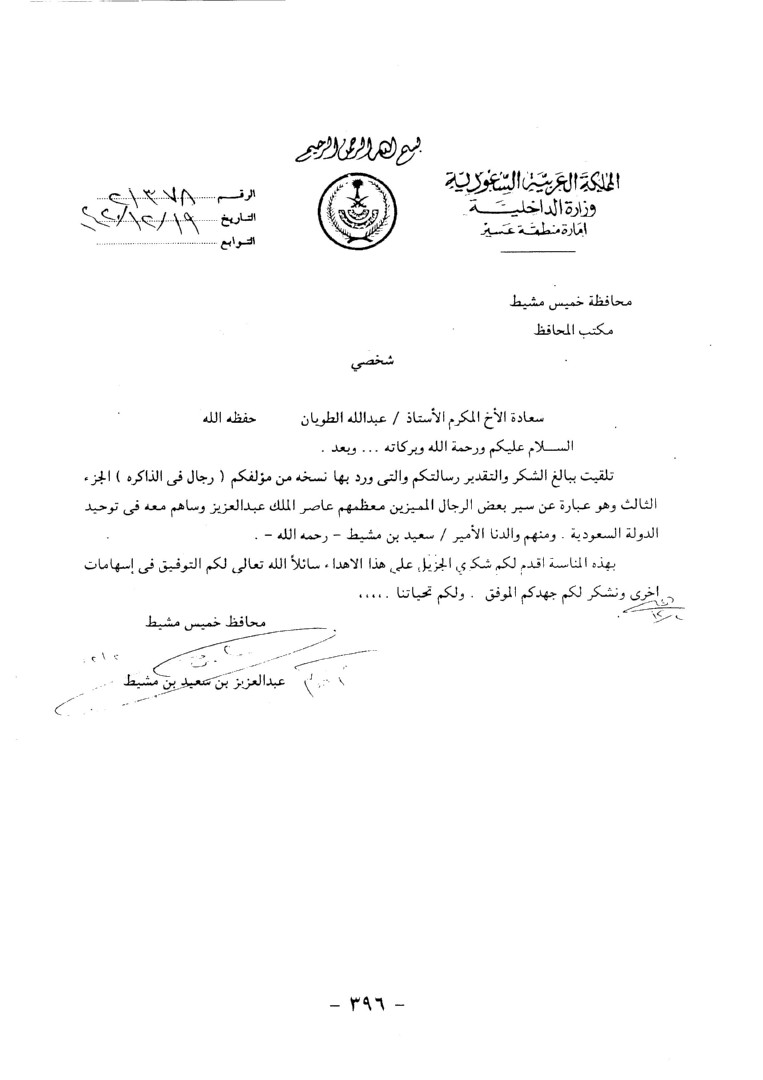 بسم الله الرحمن الرحيم
المملكة العربية السعودية
وزارة الداخلية
امارة منطقة عسير
الرقم ٢١٣٧٨
التاريخ ١٩/١٢/
التوابع
محافظة خميس مشيط
مكتب المحافظ
شخصي
سعادة الأخ المكرم الأستاذ / عبدالله الطويان حفظه الله
السلام عليكم ورحمة الله وبركاته ... وبعد .
تلقيت ببالغ الشكر والتقدير رسالتكم والتى ورد بها نسخه من مؤلفكم ( رجال فى الذاكره ) الجزء
الثالث وهو عبارة عن سير بعض الرجال المميزين معظمهم عاصر الملك عبدالعزيز وساهم معه فى توحيد
الدولة السعودية . ومنهم والدنا الأمير / سعيد بن مشيط – رحمه الله – .
بهذه المناسبة اقدم لكم شكري الجزيل على هذا الاهداء سائلاً الله تعالى لكم التوفيق فى إسهامات
اخرى ونشكر لكم جهدكم الموفق . ولكم تحياتنا .....
محافظ خميس مشيط
عبدالعزيز بن سعيد بن مشيط
– ٣٩٦ –